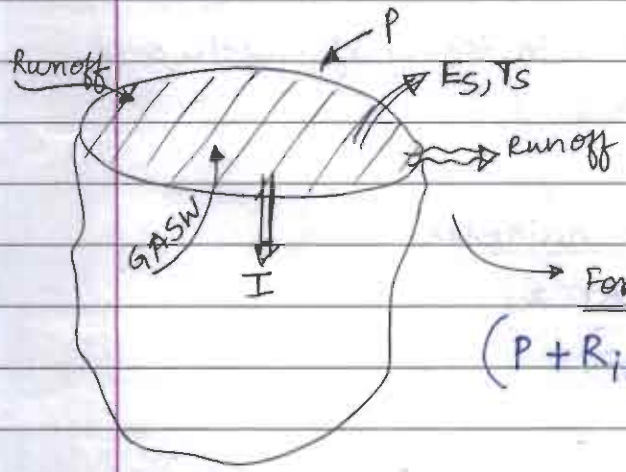 P
Runoff
Es, Ts
Runoff
GASW
I
For
(P + Ri